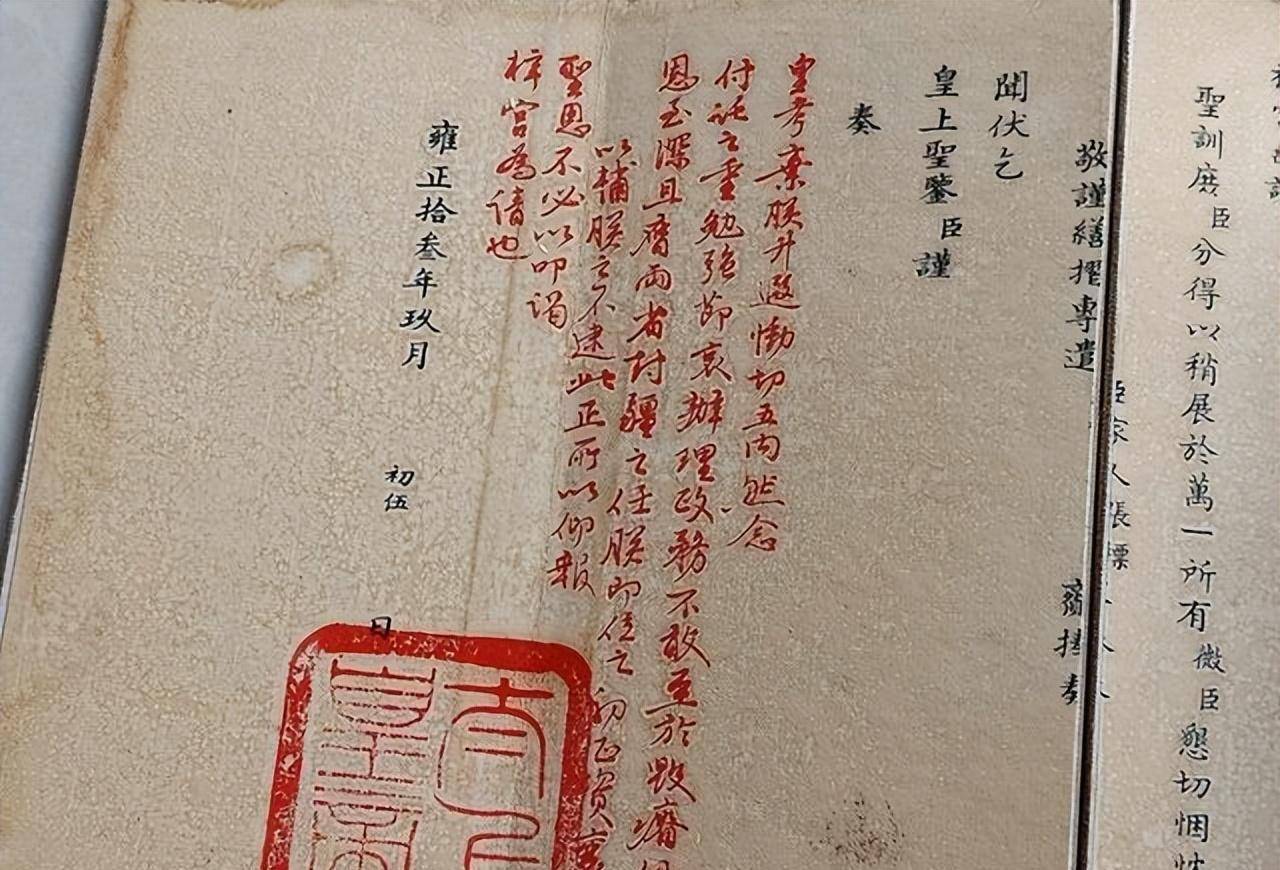 聖訓庶臣分得以稍展於萬一所有微臣懇切悃忱
臣家人張標
敬謹繕摺專遣 齎捧奏
聞伏乞
皇上聖鑒臣謹
奏
皇考棄朕升遐慟切五內然念
付託之重勉強節哀辦理政務不敢至於毀瘠
恩至深且膺兩省封疆之任朕即位之初正資
以輔朕之不逮此正所以仰報
聖恩不必以叩謁
梓宮為請也
雍正拾叁年玖月初伍日
太上
皇帝